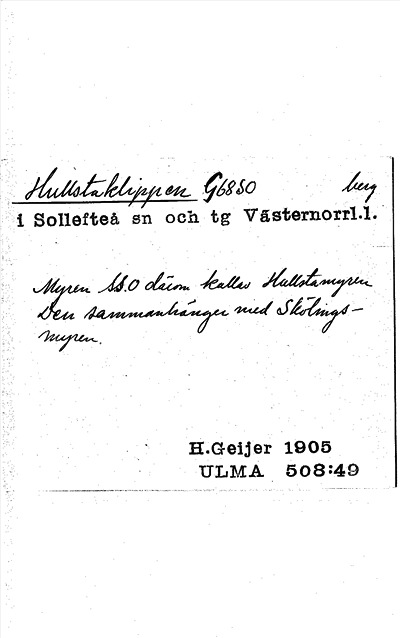 Hullstaklippen G6850 berg
i Sollefteå sn och tg Västernorrl.l.
Myren SS.O därom kallas Hullstamyren
Den sammanhänger med Skölings-
myren.
H.Geijer 1905
ULMA 508:49